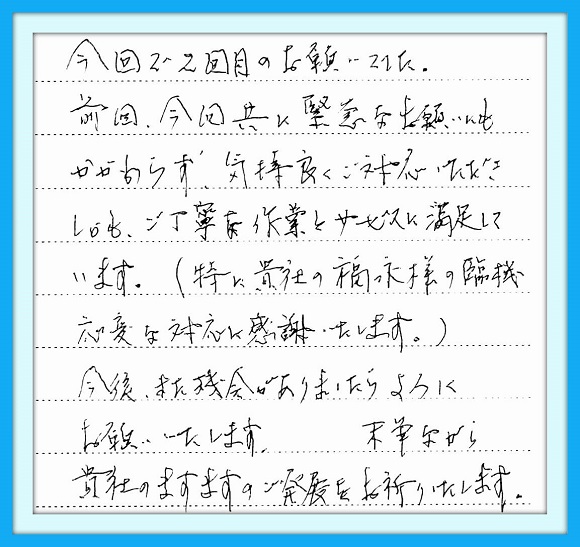 今回で2回目のお願いでした。
前回、今回共に緊急なお願いにも
かかわらず、気持良くご対応いただき
しかも、ご丁寧な作業とサービスに満足して
います。(特に貴社の福永様の臨機
応変な対応に感謝いたします。)
今後、また機会がありましたらよろしく
お願いいたします。 末筆ながら
貴社のますますのご発展をお祈りいたします。